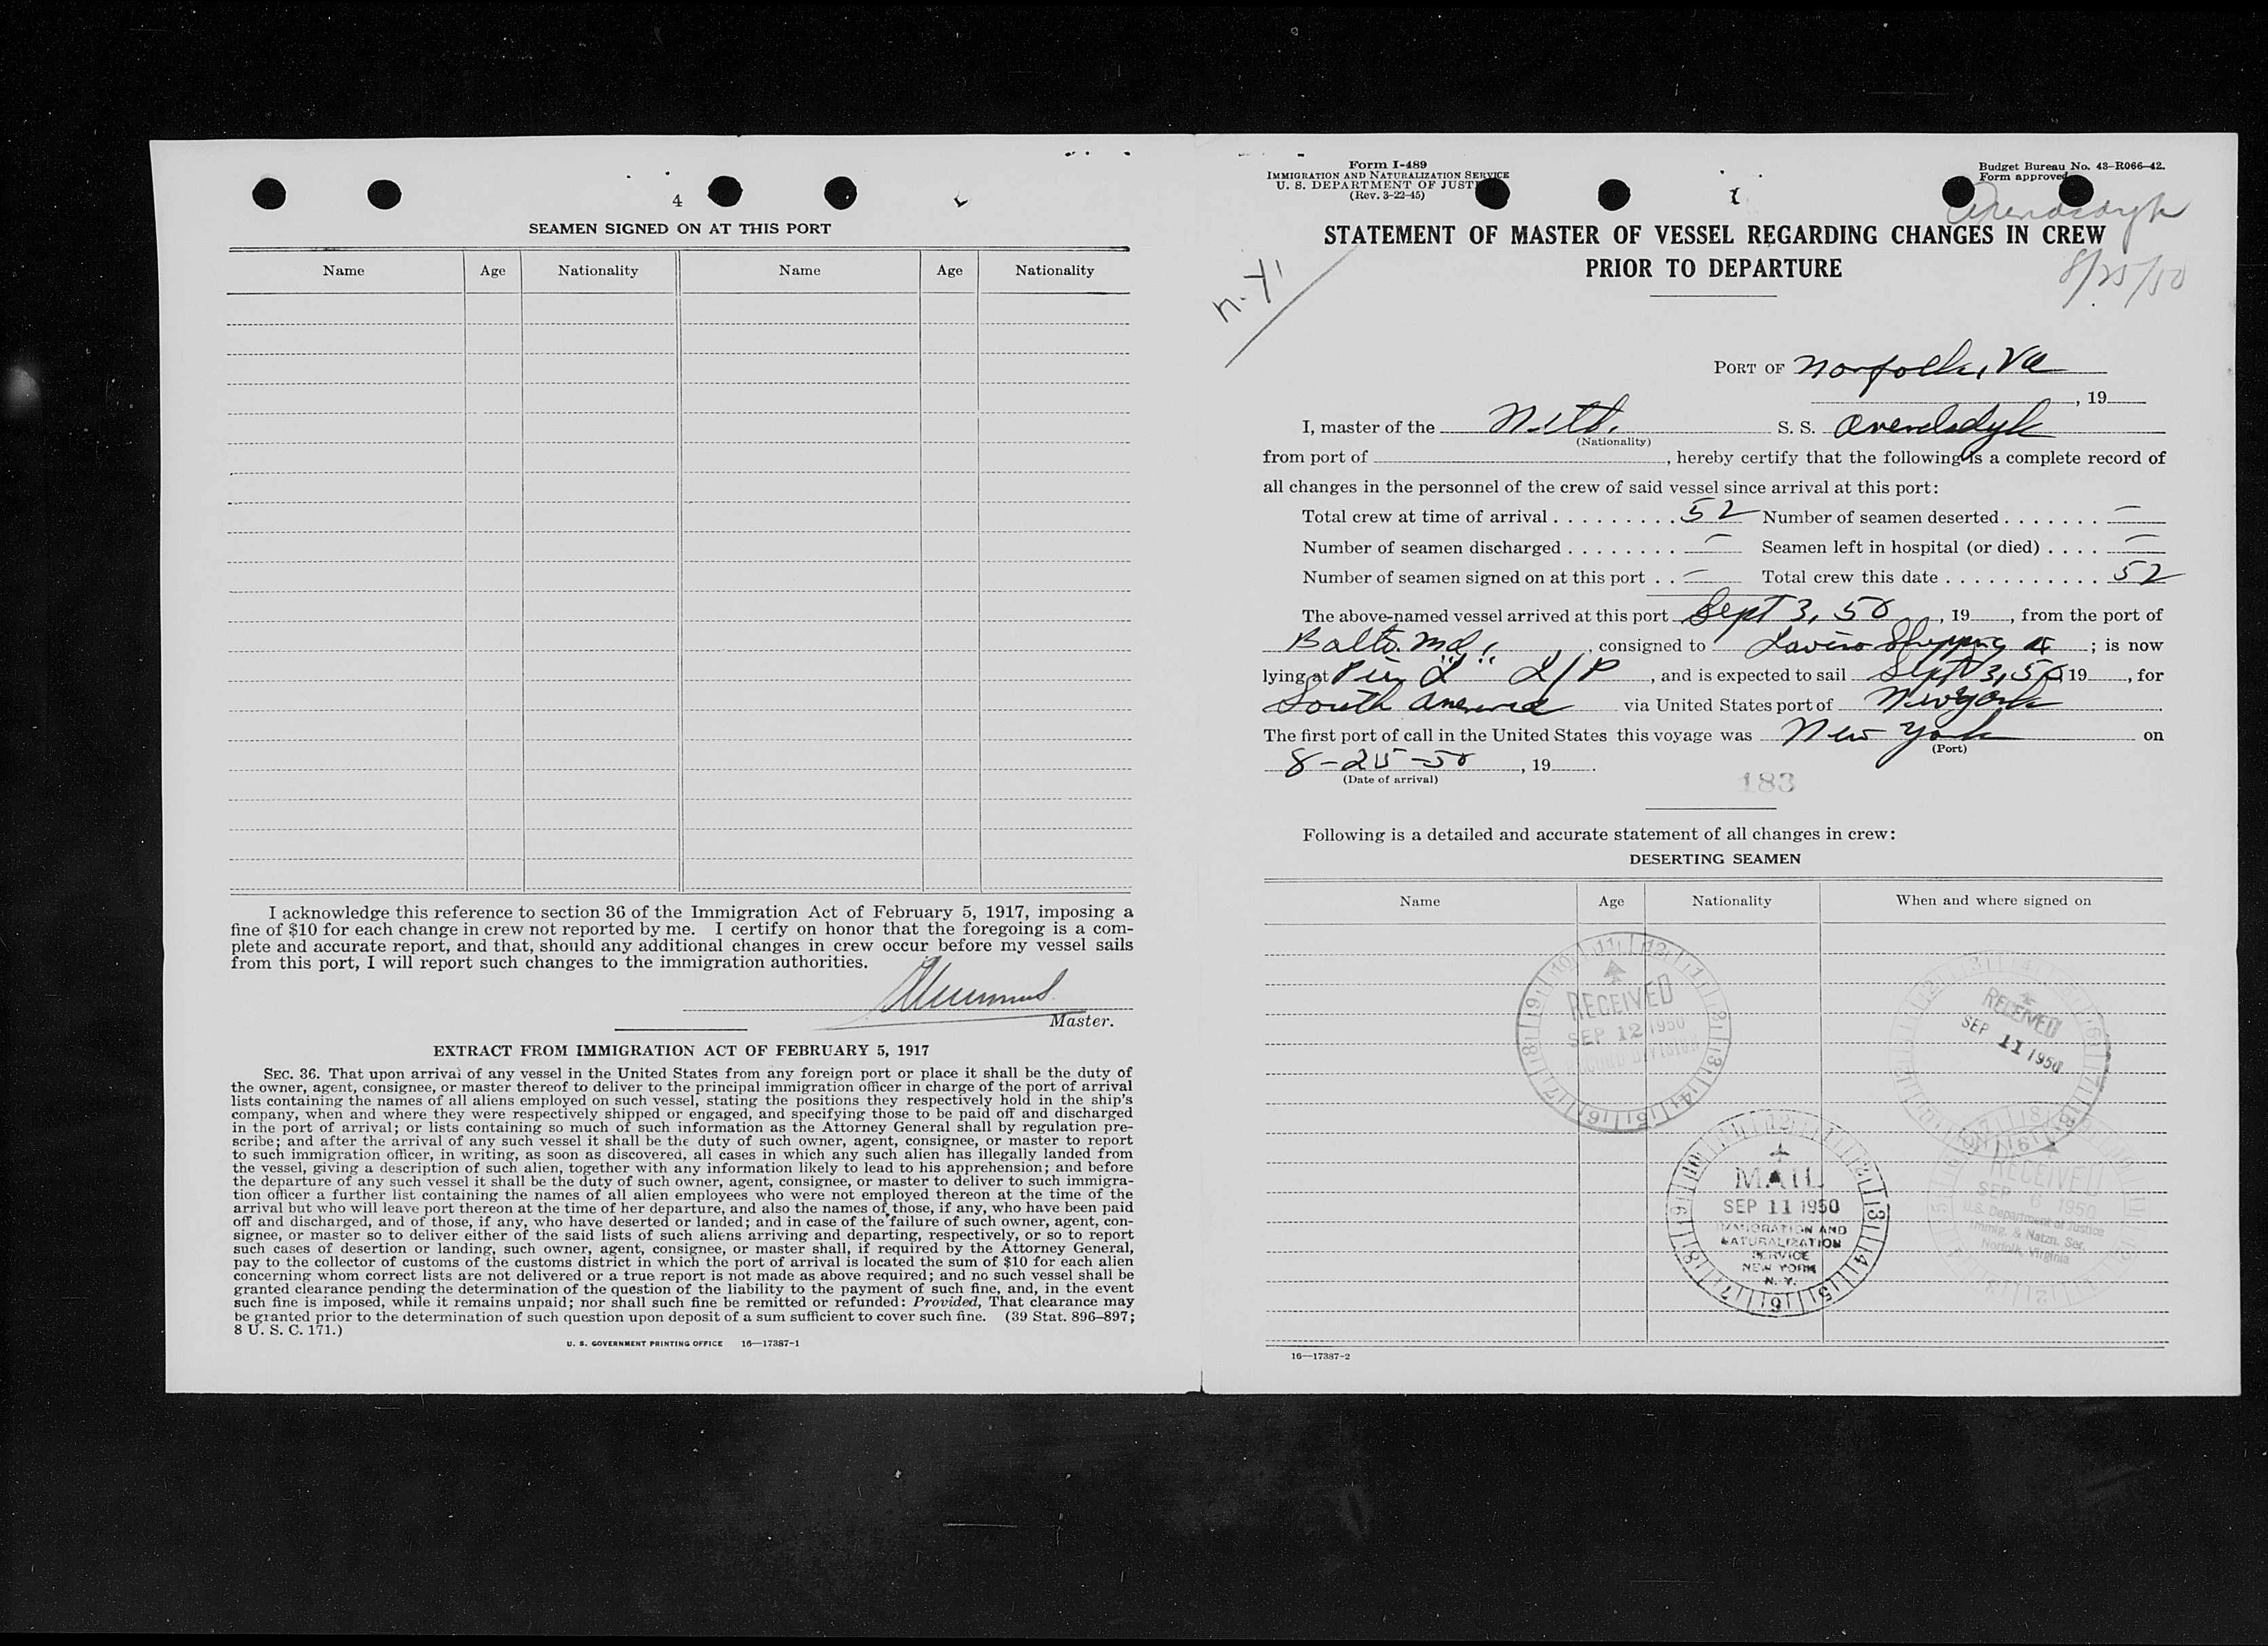 4
SEAMEN SIGNED ON AT THIS PORT
Name Age Nationality Name Age Nationality
I acknowledge this reference to section 36 of the Immigration Act of February 5, 1917, imposing a
fine of $10 for each change in crew not reported by me. I certify on honor that the foregoing is a com-
plete and accurate report, and that, should any additional changes in crew occur before my vessel sails
from this port, I will report such changes to the immigration authorities.
Master.
EXTRACT FROM IMMIGRATION ACT OF FEBRUARY 5, 1917
SEC. 36. That upon arrival of any vessel in the United States from any foreign port or place it shall be the duty of
the owner, agent, consignee, or master thereof to deliver to the principal immigration officer in charge of the port of arrival
lists containing the names of all aliens employed on such vessel, stating the positions they respectively hold in the ship's
company, when and where they were respectively shipped or engaged, and specifying those to be paid off and discharged
in the port of arrival; or lists containing so much of such information as the Attorney General shall by regulation pre-
scribe; and after the arrival of any such vessel it shall be the duty of such owner, agent, consignee, or master to report
to such immigration officer, in writing, as soon as discovered, all cases in which any such alien has illegally landed from
the vessel, giving a description of such alien, together with any information likely to lead to his apprehension; and before
the departure of any such vessel it shall be the duty of such owner, agent, consignee, or master to deliver to such immigra-
tion officer a further list containing the names of all alien employees who were not employed thereon at the time of the
arrival but who will leave port thereon at the time of her departure, and also the names of those, if any, who have been paid
off and discharged, and of those, if any, who have deserted or landed; and in case of the failure of such owner, agent, con-
signee, or master so to deliver either of the said lists of such aliens arriving and departing, respectively, or so to report
such cases of desertion or landing, such owner, agent, consignee, or master shall, if required by the Attorney General,
pay to the collector of customs of the customs district in which the port of arrival is located the sum of $10 for each alien
concerning whom correct lists are not delivered or a true report is not made as above required; and no such vessel shall be
granted clearance pending the determination of the question of the liability to the payment of such fine, and, in the event
such fine is imposed, while it remains unpaid; nor shall such fine be remitted or refunded: Provided, That clearance may
be granted prior to the determination of such question upon deposit of a sum sufficient to cover such fine. (39 Stat. 896–897;
8 U. S. C. 171.)
U. S. GOVERNMENT PRINTING OFFICE 16—17387-1
Form I-489
IMMIGRATION AND NATURALIZATION SERVICE
U. S. DEPARTMENT OF JUST
(Rev. 3-22-45)
Budget Bureau No. 43-R066-42.
Form approved
STATEMENT OF MASTER OF VESSEL REGARDING CHANGES IN CREW
PRIOR TO DEPARTURE
8/25/50
N.Y.
PORT OF Norfolk, Va
, 19
I, master of the Neth. S. S. Arendsdyk
(Nationality)
from port of , hereby certify that the following is a complete record of
all changes in the personnel of the crew of said vessel since arrival at this port:
Total crew at time of arrival . . . . . . . . . 52 Number of seamen deserted . . . . . . . —
Number of seamen discharged . . . . . . . . — Seamen left in hospital (or died) . . . . —
Number of seamen signed on at this port . . — Total crew this date . . . . . . . . . . . 52
The above-named vessel arrived at this port Sept 3, 50, 19 , from the port of
Balto. Md, , consigned to Lavino Shipping ; is now
lying at Pier "L" L/P , and is expected to sail Sept 3, 50 19 , for
South America via United States port of New York .
The first port of call in the United States this voyage was New York on
(Port)
8-25-50 , 19 .
(Date of arrival)
183
Following is a detailed and accurate statement of all changes in crew:
DESERTING SEAMEN
Name Age Nationality When and where signed on
RECEIVED
SEP 12 1950
RECORD DIVISION
RECEIVED
SEP 11 1950
MAIL
SEP 11 1950
IMMIGRATION AND
NATURALIZATION
SERVICE
NEW YORK
N. Y.
RECEIVED
SEP 6 1950
U.S. Department of Justice
Immig. & Natzn. Ser.
Norfolk, Virginia
16—17387-2